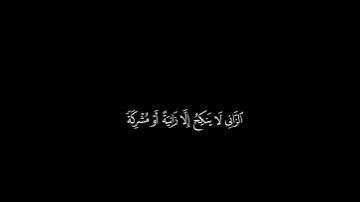 ٱلزَّانِى لَا يَنكِحُ إِلَّا زَانِيَةً أَوْ مُشْرِكَةً